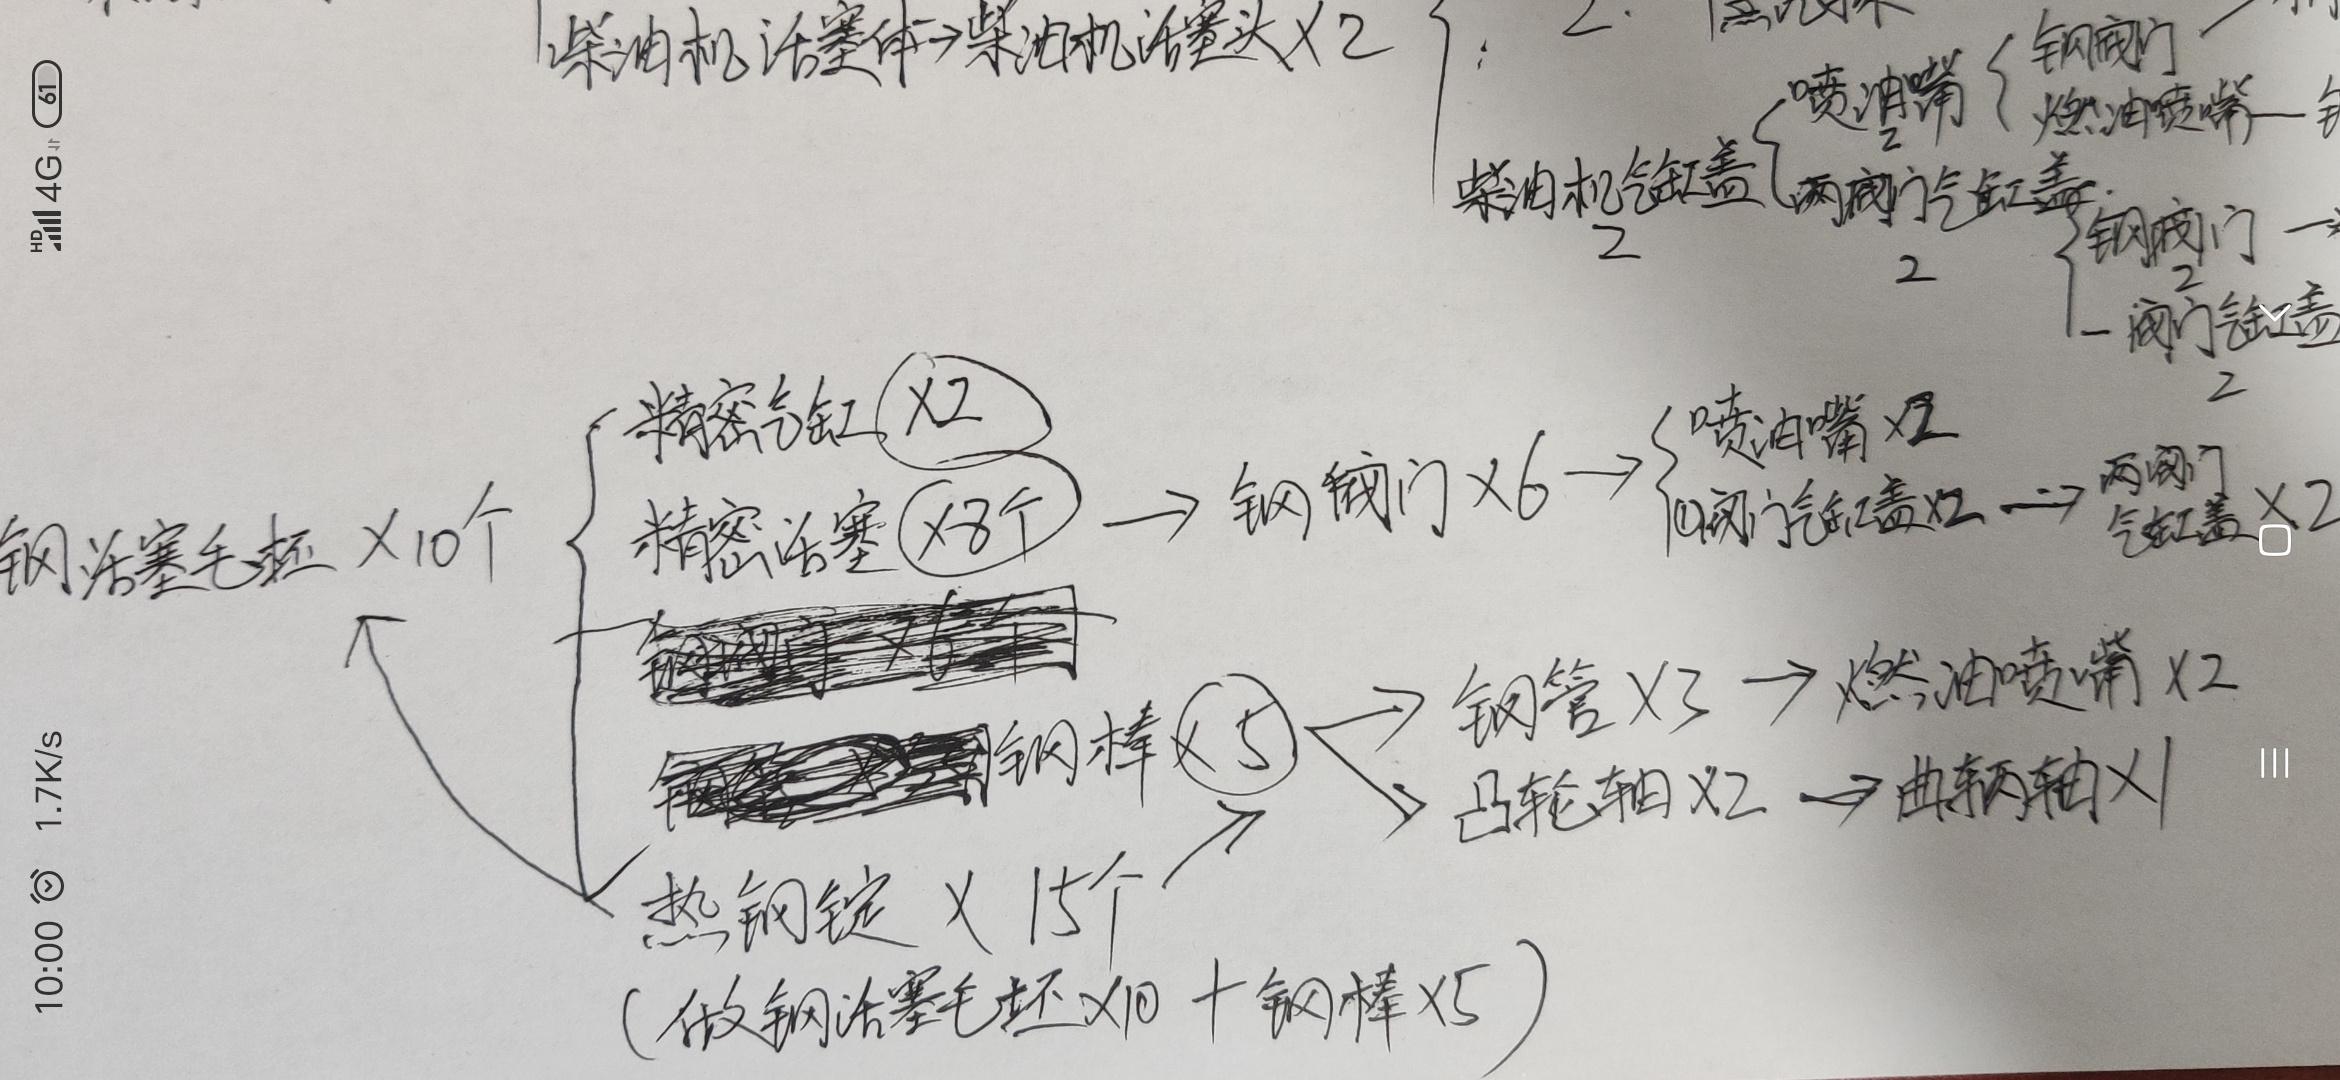 柴油机活塞体→柴油机活塞头×2
2.
喷油嘴
2
钢阀门
燃油喷嘴—
柴油机气缸盖
2
两阀门气缸盖
2
钢阀门→
2
一阀门气缸盖
2
精密气缸×2
精密活塞×8个→钢阀门×6→
喷油嘴×2
阀门气缸盖×2→两阀门气缸盖×2
钢活塞毛坯×10个
钢阀门×6个
钢棒×5
钢管×3→燃油喷嘴×2
凸轮轴×2→曲轴×1
热钢锭×15个
(做钢活塞毛坯×10+钢棒×5)
10:00
1.7K/s
HD
4G
61